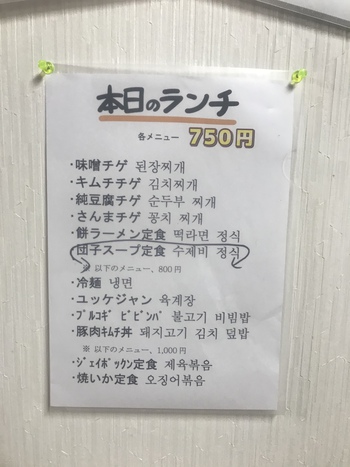 本日のランチ
各メニュー 750円
・味噌チゲ 된장찌개
・キムチチゲ 김치찌개
・純豆腐チゲ 순두부 찌개
・さんまチゲ 꽁치 찌개
・餅ラーメン定食 떡라면 정식
団子スープ定食 수제비 정식
※ 以下のメニュー、800円
・冷麺 냉면
・ユッケジャン 육계장
・プルコギ ビビンバ 불고기 비빔밥
・豚肉キムチ丼 돼지고기 김치 덮밥
※ 以下のメニュー、1,000円
・ジェイボックン定食 제육볶음
・焼いか定食 오징어볶음